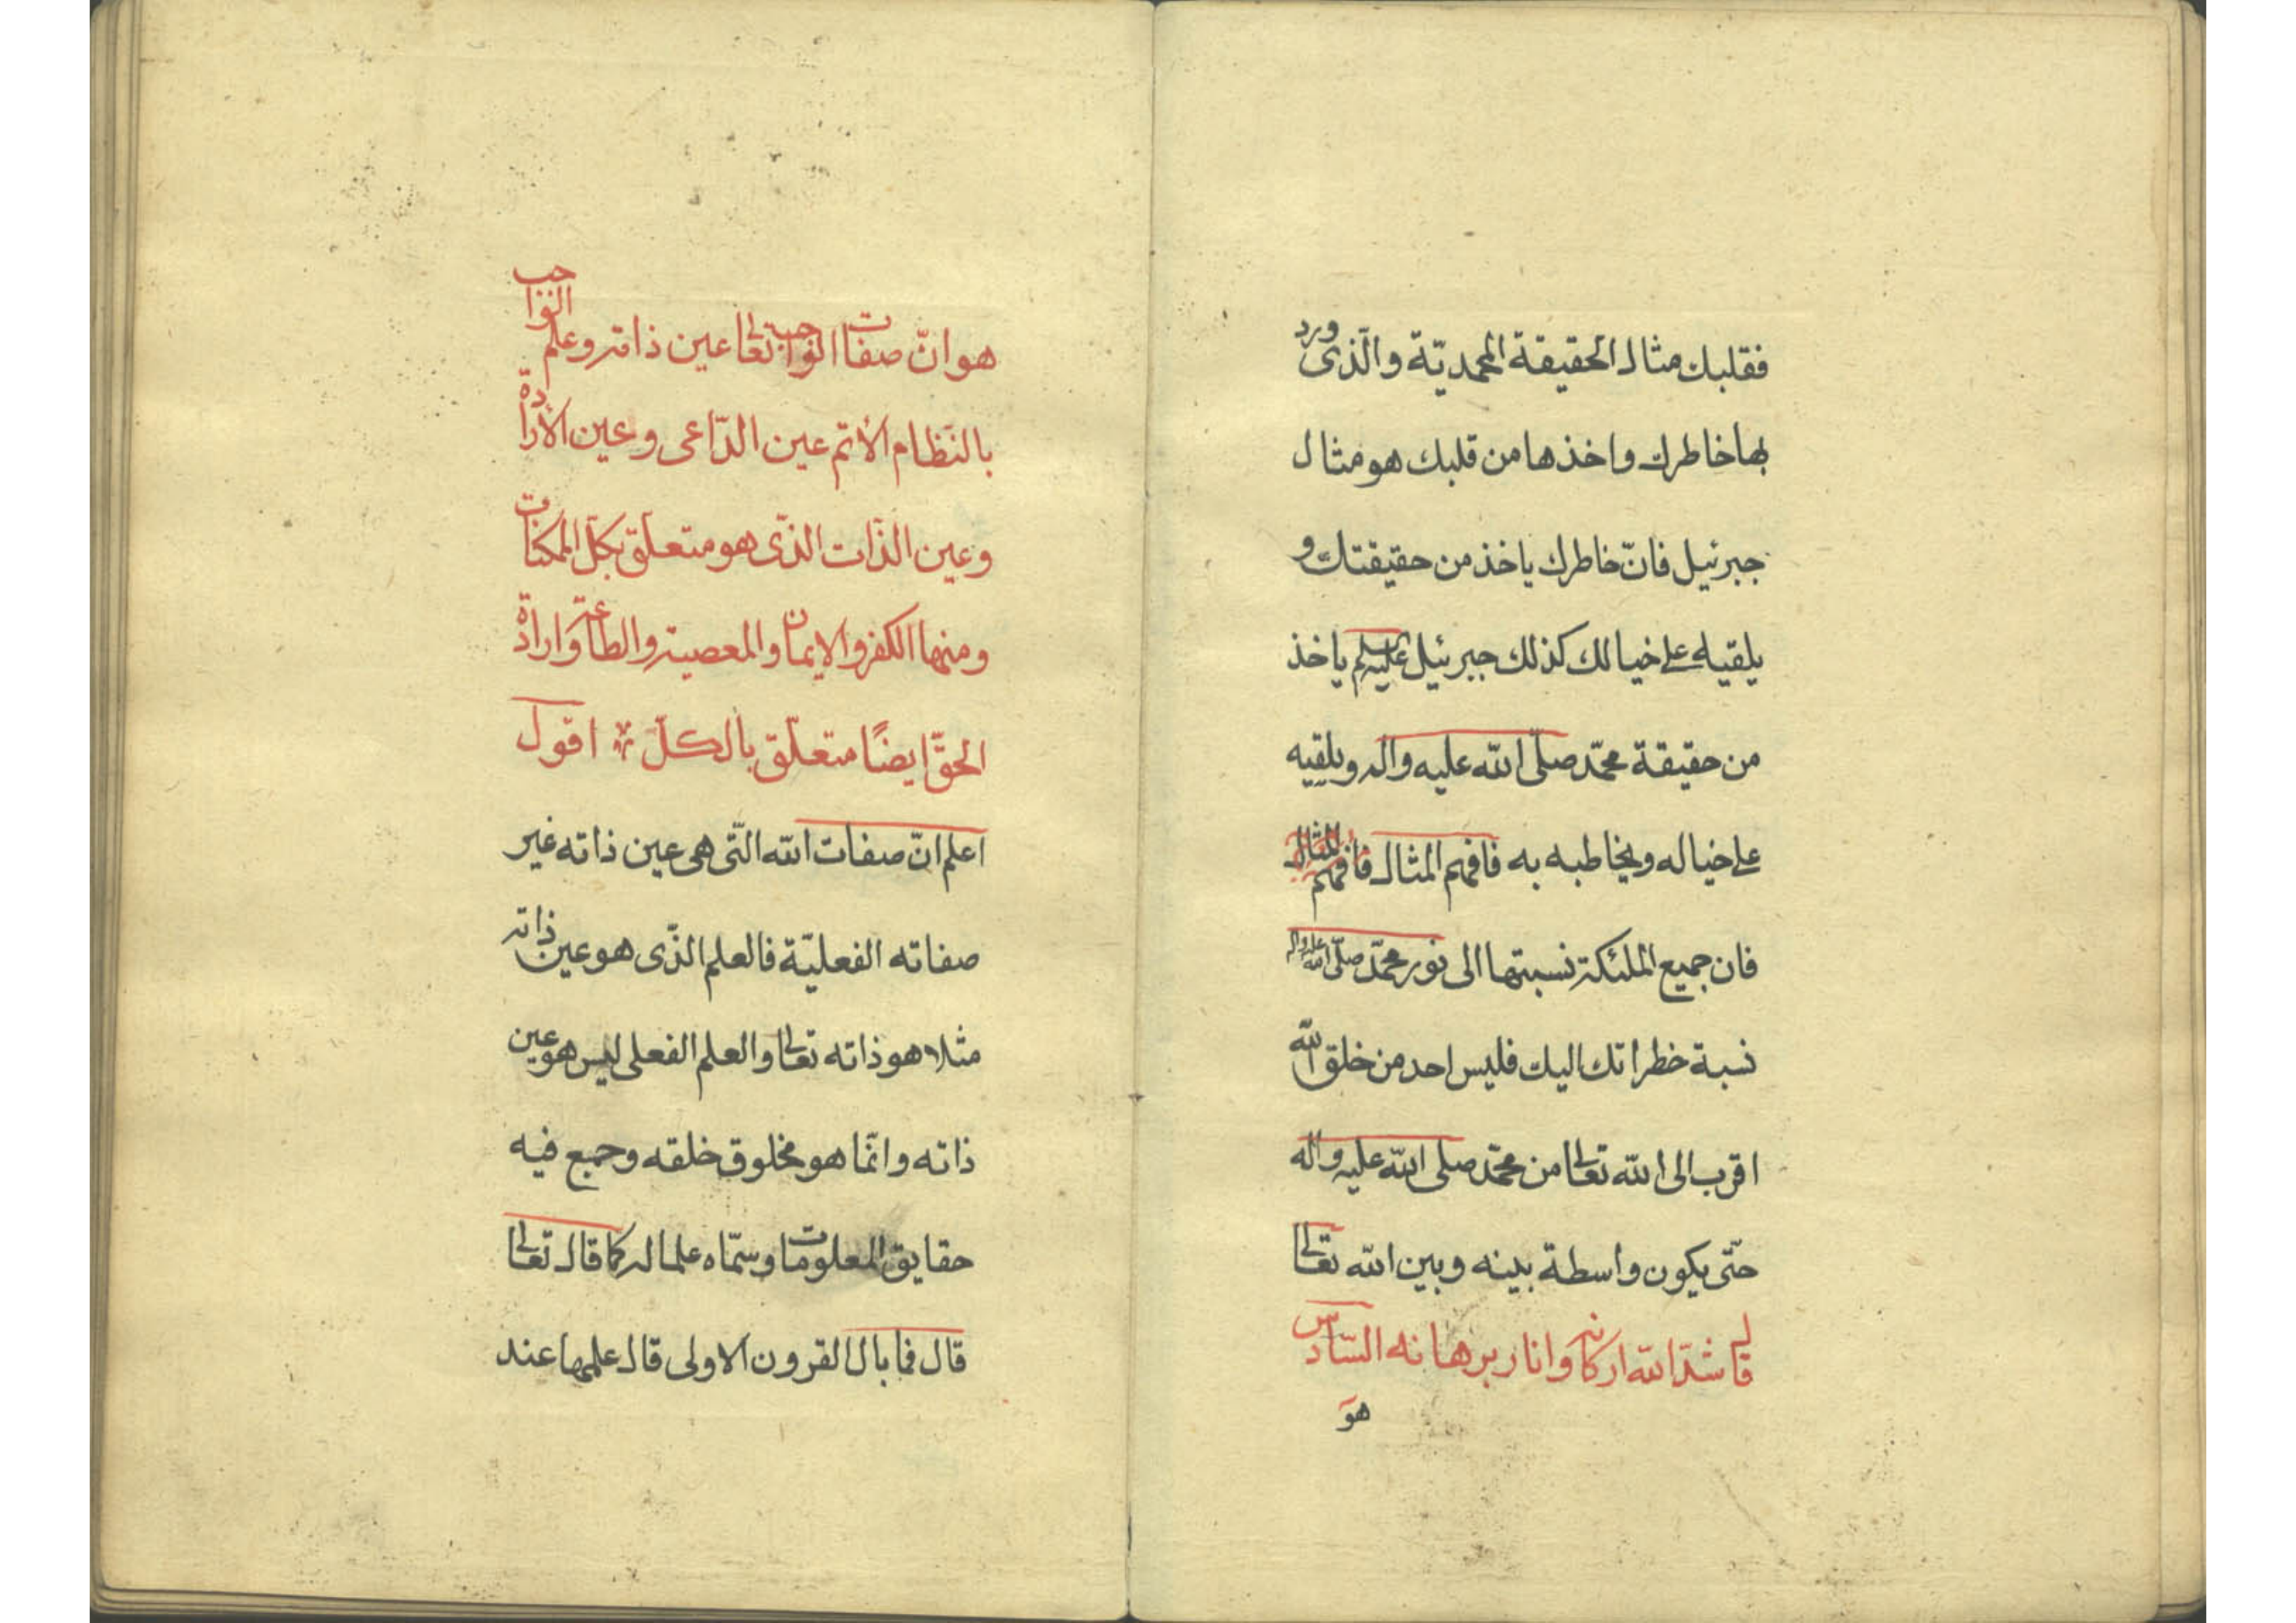 فقلبك مثال الحقيقة المحمديّة والّذى ورد
بها خاطرك واخذها من قلبك هو مثال
جبرئيل فانّ خاطرك ياخذ من حقيقتك و
يلقيه على خيالك كذلك جبرئيل عليه السلم ياخذ
من حقيقة محمّد صلّى الله عليه واله ويلقيه
على خياله ويخاطبه به فافهم المثال فافهم
فان جميع الملئكة نسبتها الى نور محمّد صلّى الله عليه واله
نسبة خطراتك اليك فليس احد من خلق الله
اقرب الى الله تعالى من محمّد صلى الله عليه واله
حتّى يكون واسطة بينه وبين الله تعالى
قال شدّ الله اركانه وانار برهانه السّادس
هو
هو انّ صفات الواجب تعالى عين ذاته وعلم الواجب
بالنّظام الأتم عين الدّاعى وعين الأرادة
وعين الذّات الذّى هو متعلّق بكلّ الممكنات
ومنها الكفر والايمان والمعصية والطاعة وارادة
الحقّ ايضًا متعلّق بالكلّ اقول
اعلم انّ صفات الله الّتى هى عين ذاته غير
صفاته الفعليّة فالعلم الذّى هو عين ذاته
مثلا هو ذاته تعالى والعلم الفعلى ليس هو عين
ذاته وانّما هو مخلوق خلقه وجمع فيه
حقايق المعلومات وسمّاه علما له كما قال تعالى
قال فما بال القرون الاولى قال علمها عند